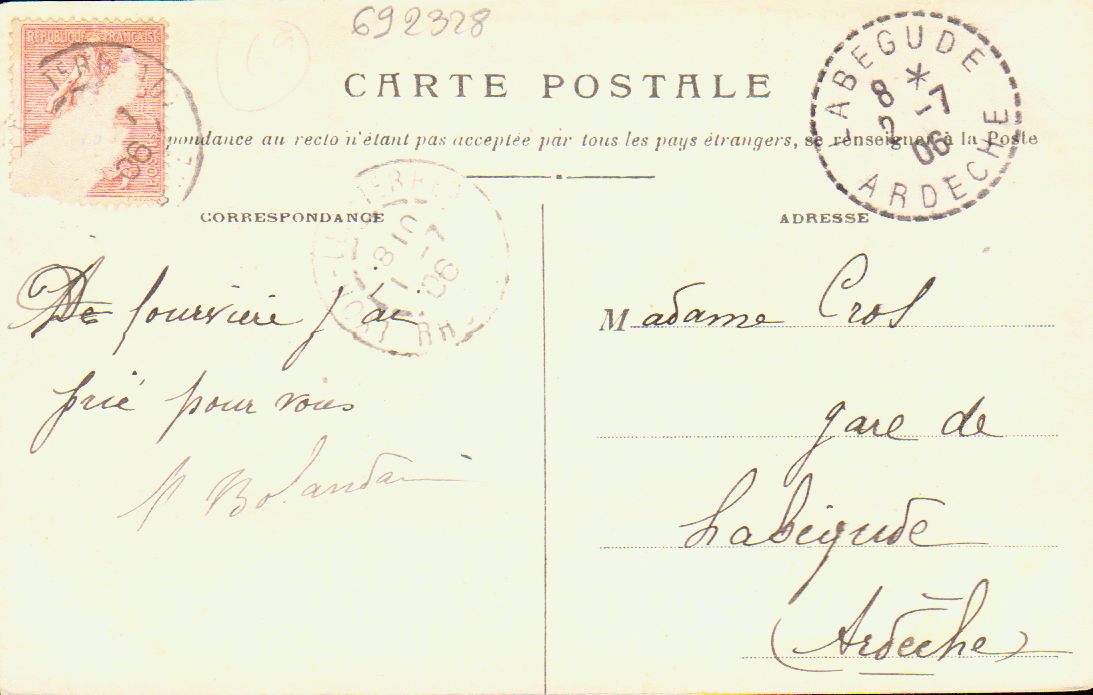 692328
REPUBLIQUE FRANÇAISE
POSTES
CARTE POSTALE
pondance au recto n'étant pas acceptée par tous les pays étrangers, se renseigner à la Poste
LABEGUDE
8 * 7
2 06
ARDECHE
8 10
1 -7
06
CORRESPONDANCE
ADRESSE
De fourvière j'ai
prié pour vous
Madame Cros
gare de
Labégude
(Ardèche)